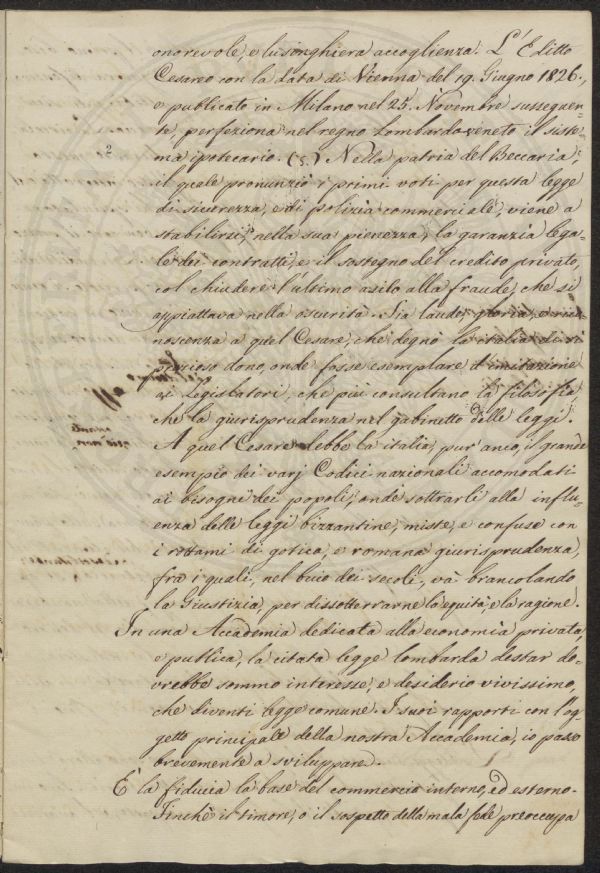 onorevole, e lusinghiera accoglienza. L'Editto
Cesareo con la data di Vienna del 19. Giugno 1826.,
e publicato in Milano nel 25. Novembre susseguen-
te, perfeziona nel regno Lombardo-veneto il siste-
ma ipotecario. (5.) Nella patria del Beccaria,
2
il quale pronunziò i primi voti per questa legge
di sicurezza, e di polizia commerciale, viene a
stabilirsi, nella sua pienezza, la garanzia lega-
le dei contratti, e il sostegno del credito privato,
col chiudere l'ultimo asilo alla fraude, che si
appiattava nella oscurità. Sia laude, gloria, e rico-
noscenza a quel Cesare, che degnò la italia di si
prezioso dono, onde fosse esemplare d'imitazione
ai Legislatori, che più consultano la filosofia,
che la giurisprudenza nel gabinetto delle leggi.
A quel Cesare debbe la italia, pur anco, il grande
esempio dei varj Codici nazionali accomodati
ai bisogni dei popoli, onde sottrarli alla influ-
enza delle leggi bizzantine, miste, e confuse con
i rottami di gotica, e romana giurisprudenza,
fra i quali, nel buio dei secoli, và brancolando
la Giustizia, per dissotterrarne la equità, e la ragione.
In una Accademia dedicata alla economia privata,
e publica, la citata legge lombarda destar do-
vrebbe sommo interesse, e desiderio vivissimo,
che diventi legge comune. I suoi rapporti con l'og-
getto principale della nostra Accademia, io passo
brevemente a sviluppare.
È la fiducia la base del commercio interno, ed esterno.
Finchè il timore, o il sospetto della mala fede preoccupa